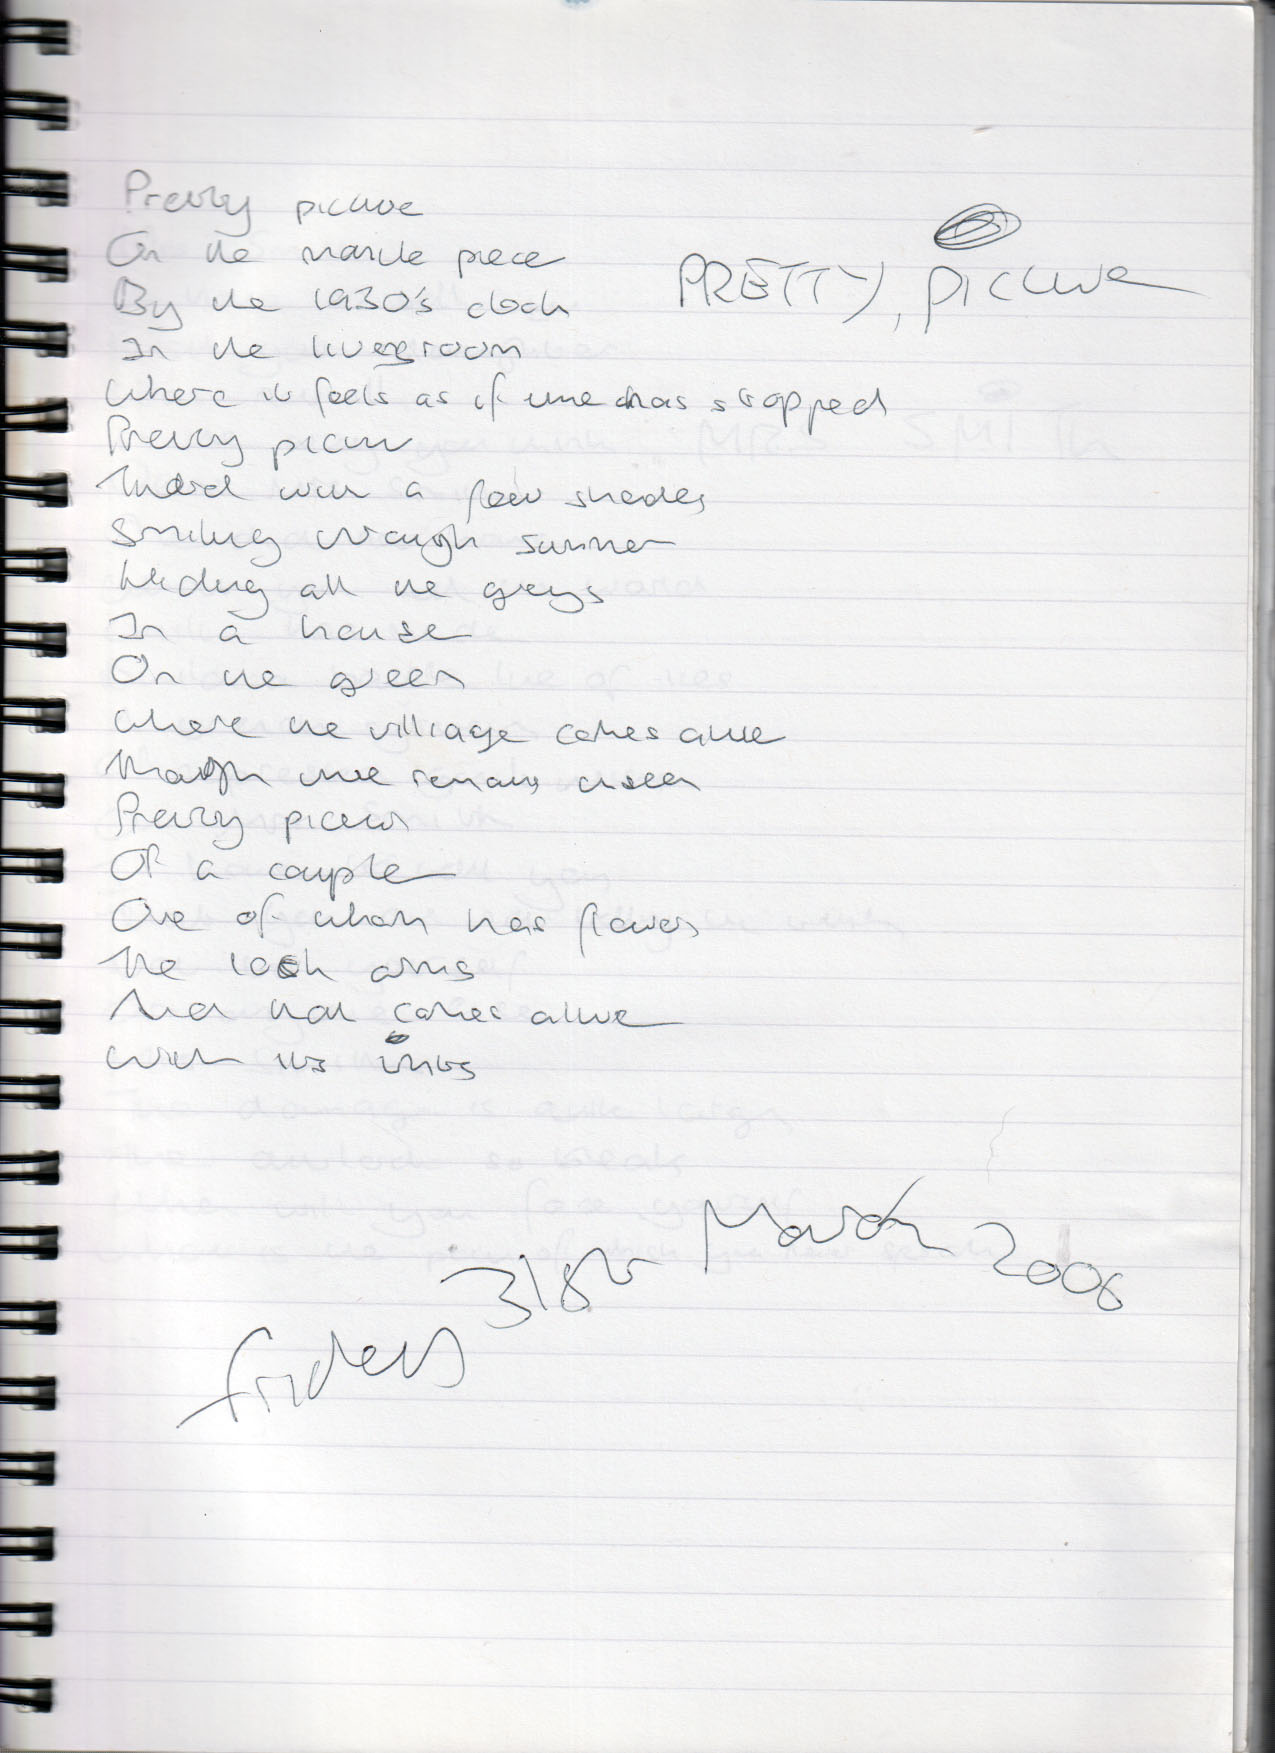 PRETTY, picture
Pretty picture
On the mantle piece
By the 1930's clock
In the living room
Where it feels as if time has stopped
Pretty picture
with a few shades
Smiling through summer
Hiding all the greys
In a house
On the green
Where the villiage comes alive
Though time remains
Pretty picture
Of a couple
One of whom has flowers
The look
And that comes alive
With its
Friday 31st March 2006